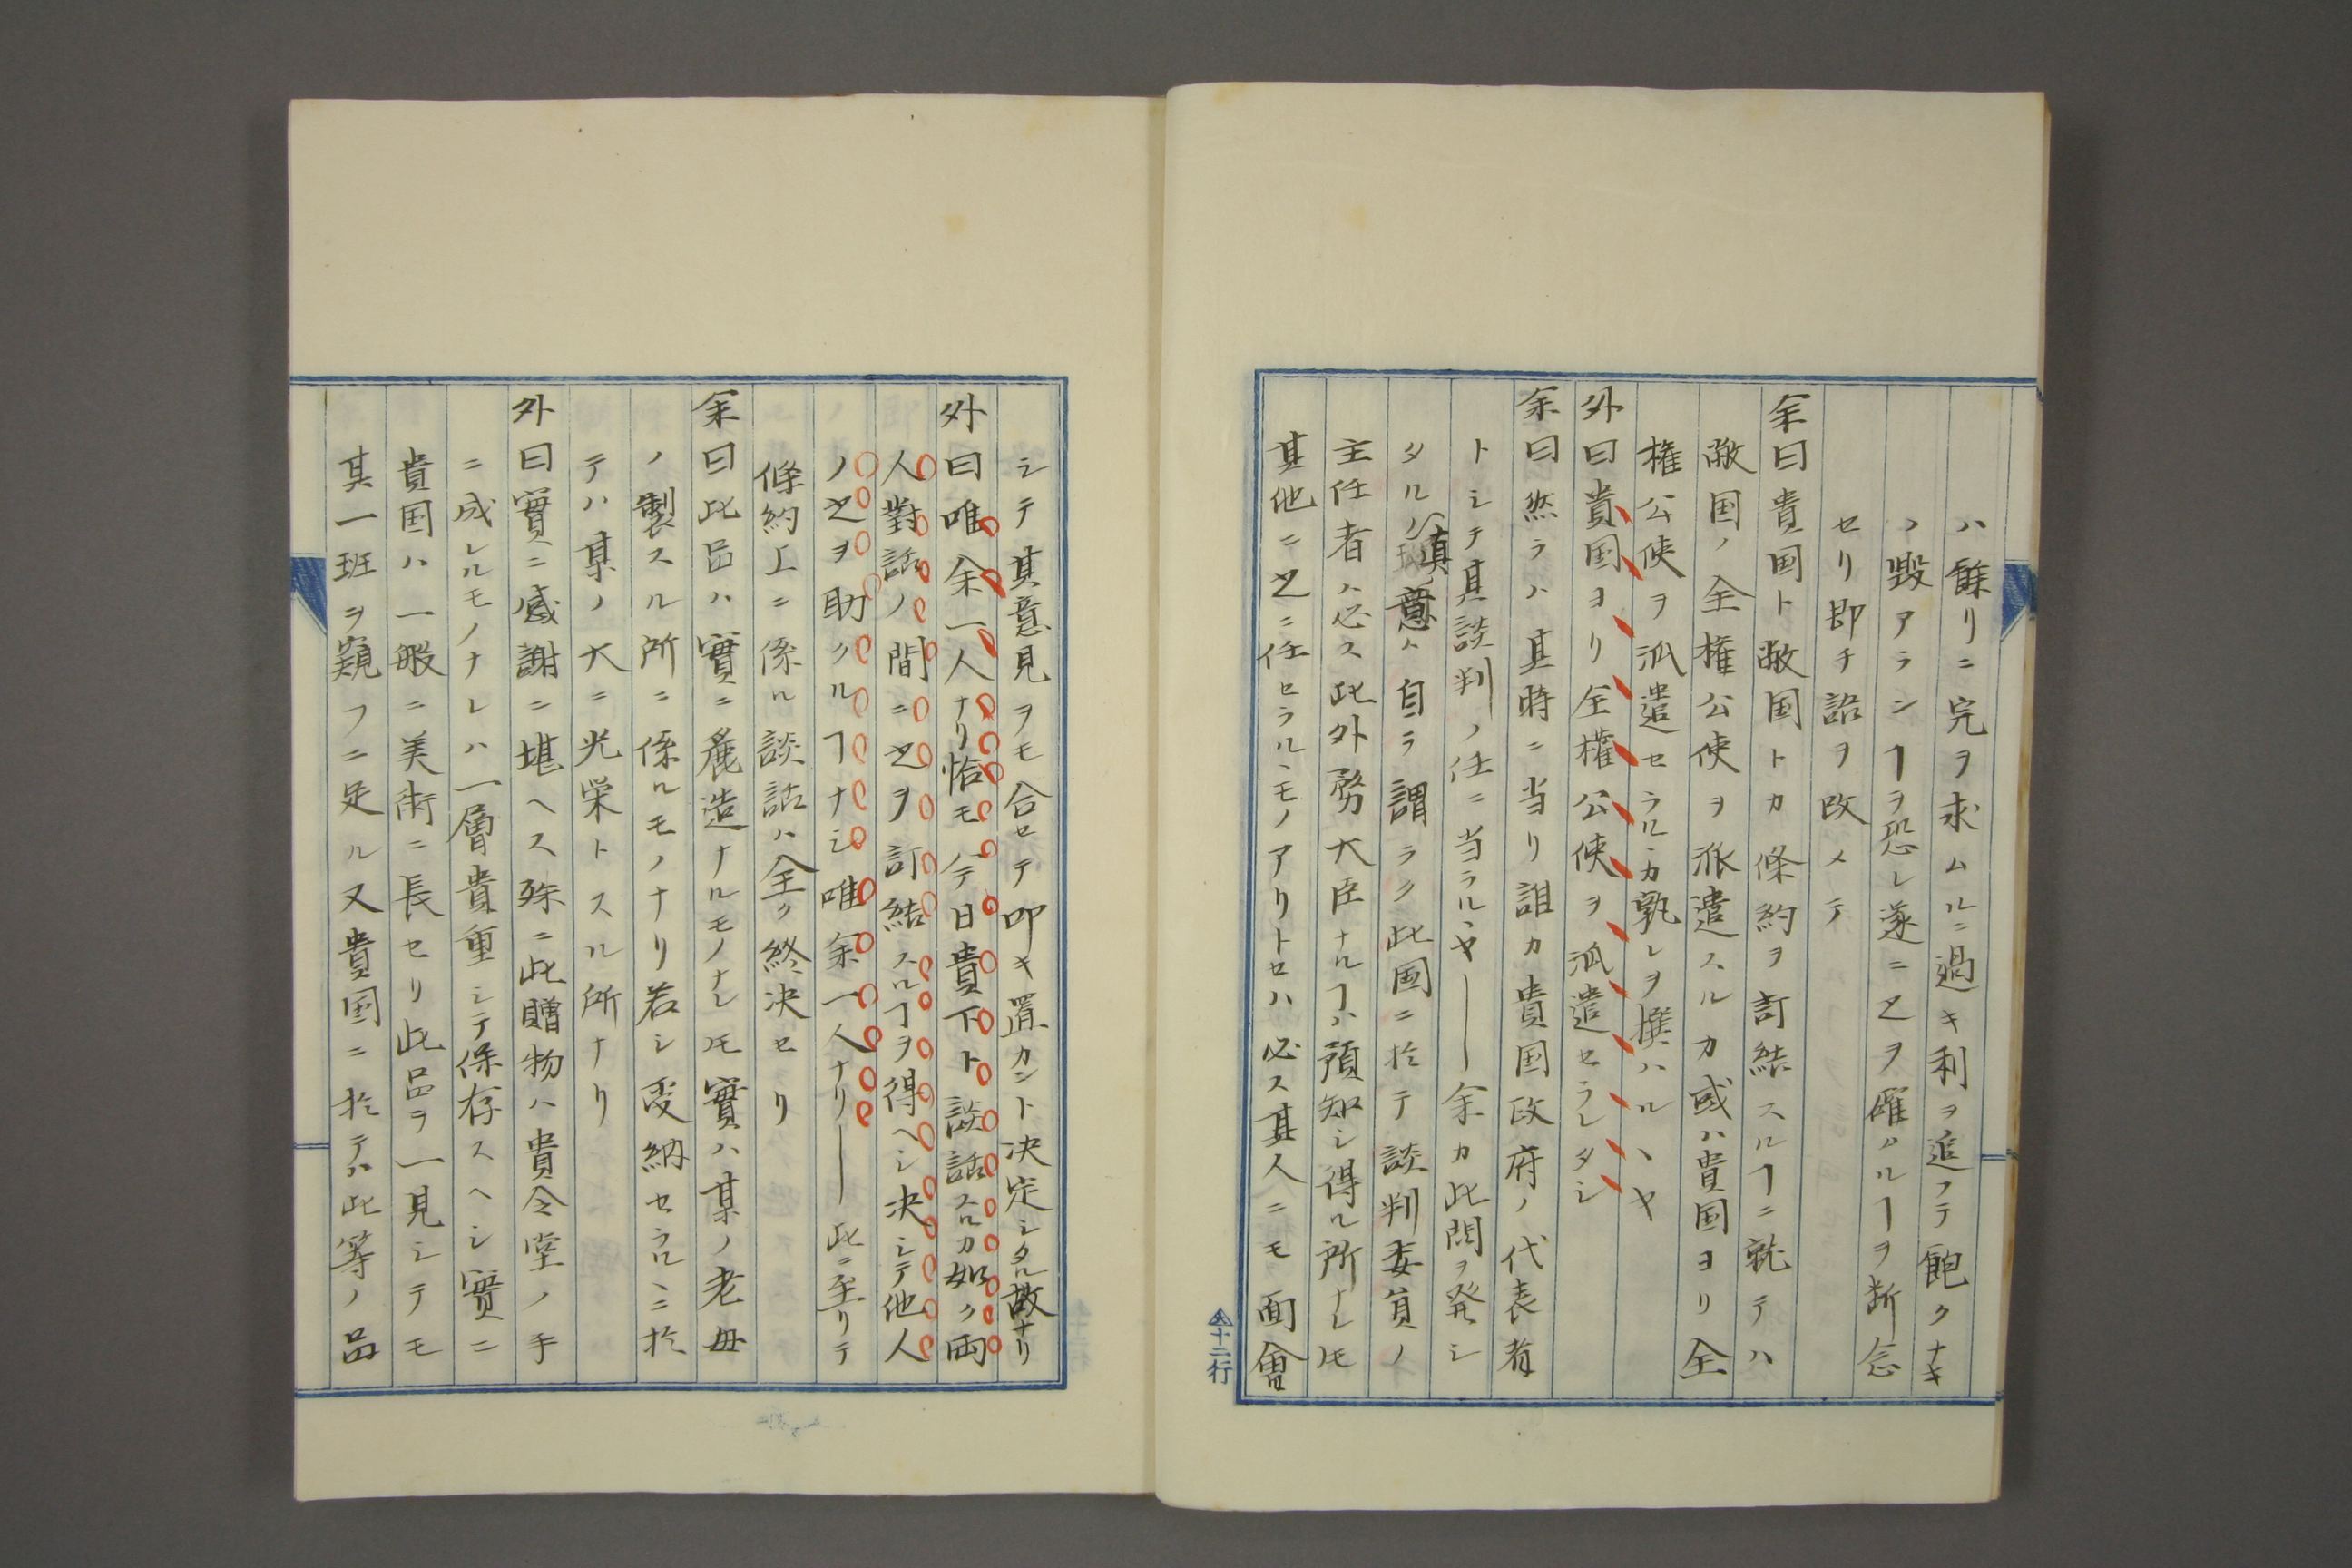 ハ餘リニ完ヲ求ムルニ過キ利ヲ追フテ飽クナキ
ノ毀アランヿヲ恐レ遂ニ之ヲ確ハルヿヲ断念
セリ即チ語ヲ改メテ
余曰貴国ト敝国トカ條約ヲ訂結スルヿニ就テハ
敝国ノ全権公使ヲ派遣スルカ或ハ貴国ヨリ全
権公使ヲ派遣セラルヽカ孰レヲ撰ハルヽヤ
外曰貴国ヨリ全権公使ヲ派遣セラレタシ
余曰然ラハ其時ニ当リ誰カ貴国政府ノ代表者
トシテ其談判ノ任ニ当ラルヽヤ――余カ此問ヲ発シ
タル真意ハ自ラ謂ラク此国ニ於テ談判委員ノ
主任者ハ必ス此外務大臣ナルヿハ預知シ得ル所ナレ𪜈
其他ニ之ニ任セラルヽモノアリトセハ必ス其人ニモ面會
十二行
シテ其意見ヲモ合セテ叩キ置カント決定シタル故ナリ
外曰唯余一人ナリ恰モ今日貴下ト談話スルカ如ク両
人對話ノ間ニ之ヲ訂結スルヿヲ得ヘシ決シテ他人
ノ之ヲ助クルヿナシ唯余一人ナリ――此ニ至リテ
條約上ニ係ル談話ハ全ク終決セリ
余曰此品ハ實ニ麁造ナルモノナレ𪜈實ハ某ノ老母
ノ製スル所ニ係ルモノナリ若シ受納セラルヽニ於
テハ某ノ大ニ光栄トスル所ナリ
外曰實ニ感謝ニ堪ヘス殊ニ此贈物ハ貴令堂ノ手
ニ成レルモノナレハ一層貴重シテ保存スヘシ實ニ
貴国ハ一般ニ美術ニ長セリ此品ヲ一見シテモ
其一班ヲ窺フニ足ル又貴国ニ於テハ此等ノ品